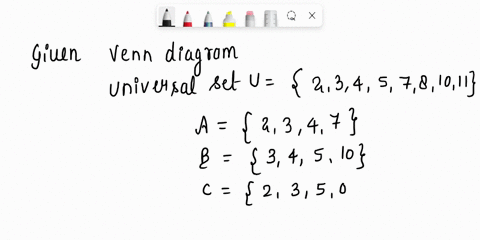 Given Venn diagram
universal set U = { 2, 3, 4, 5, 7, 8, 10, 11}
A = { 2, 3, 4, 7 }
B = { 3, 4, 5, 10}
C = { 2, 3, 5, 0